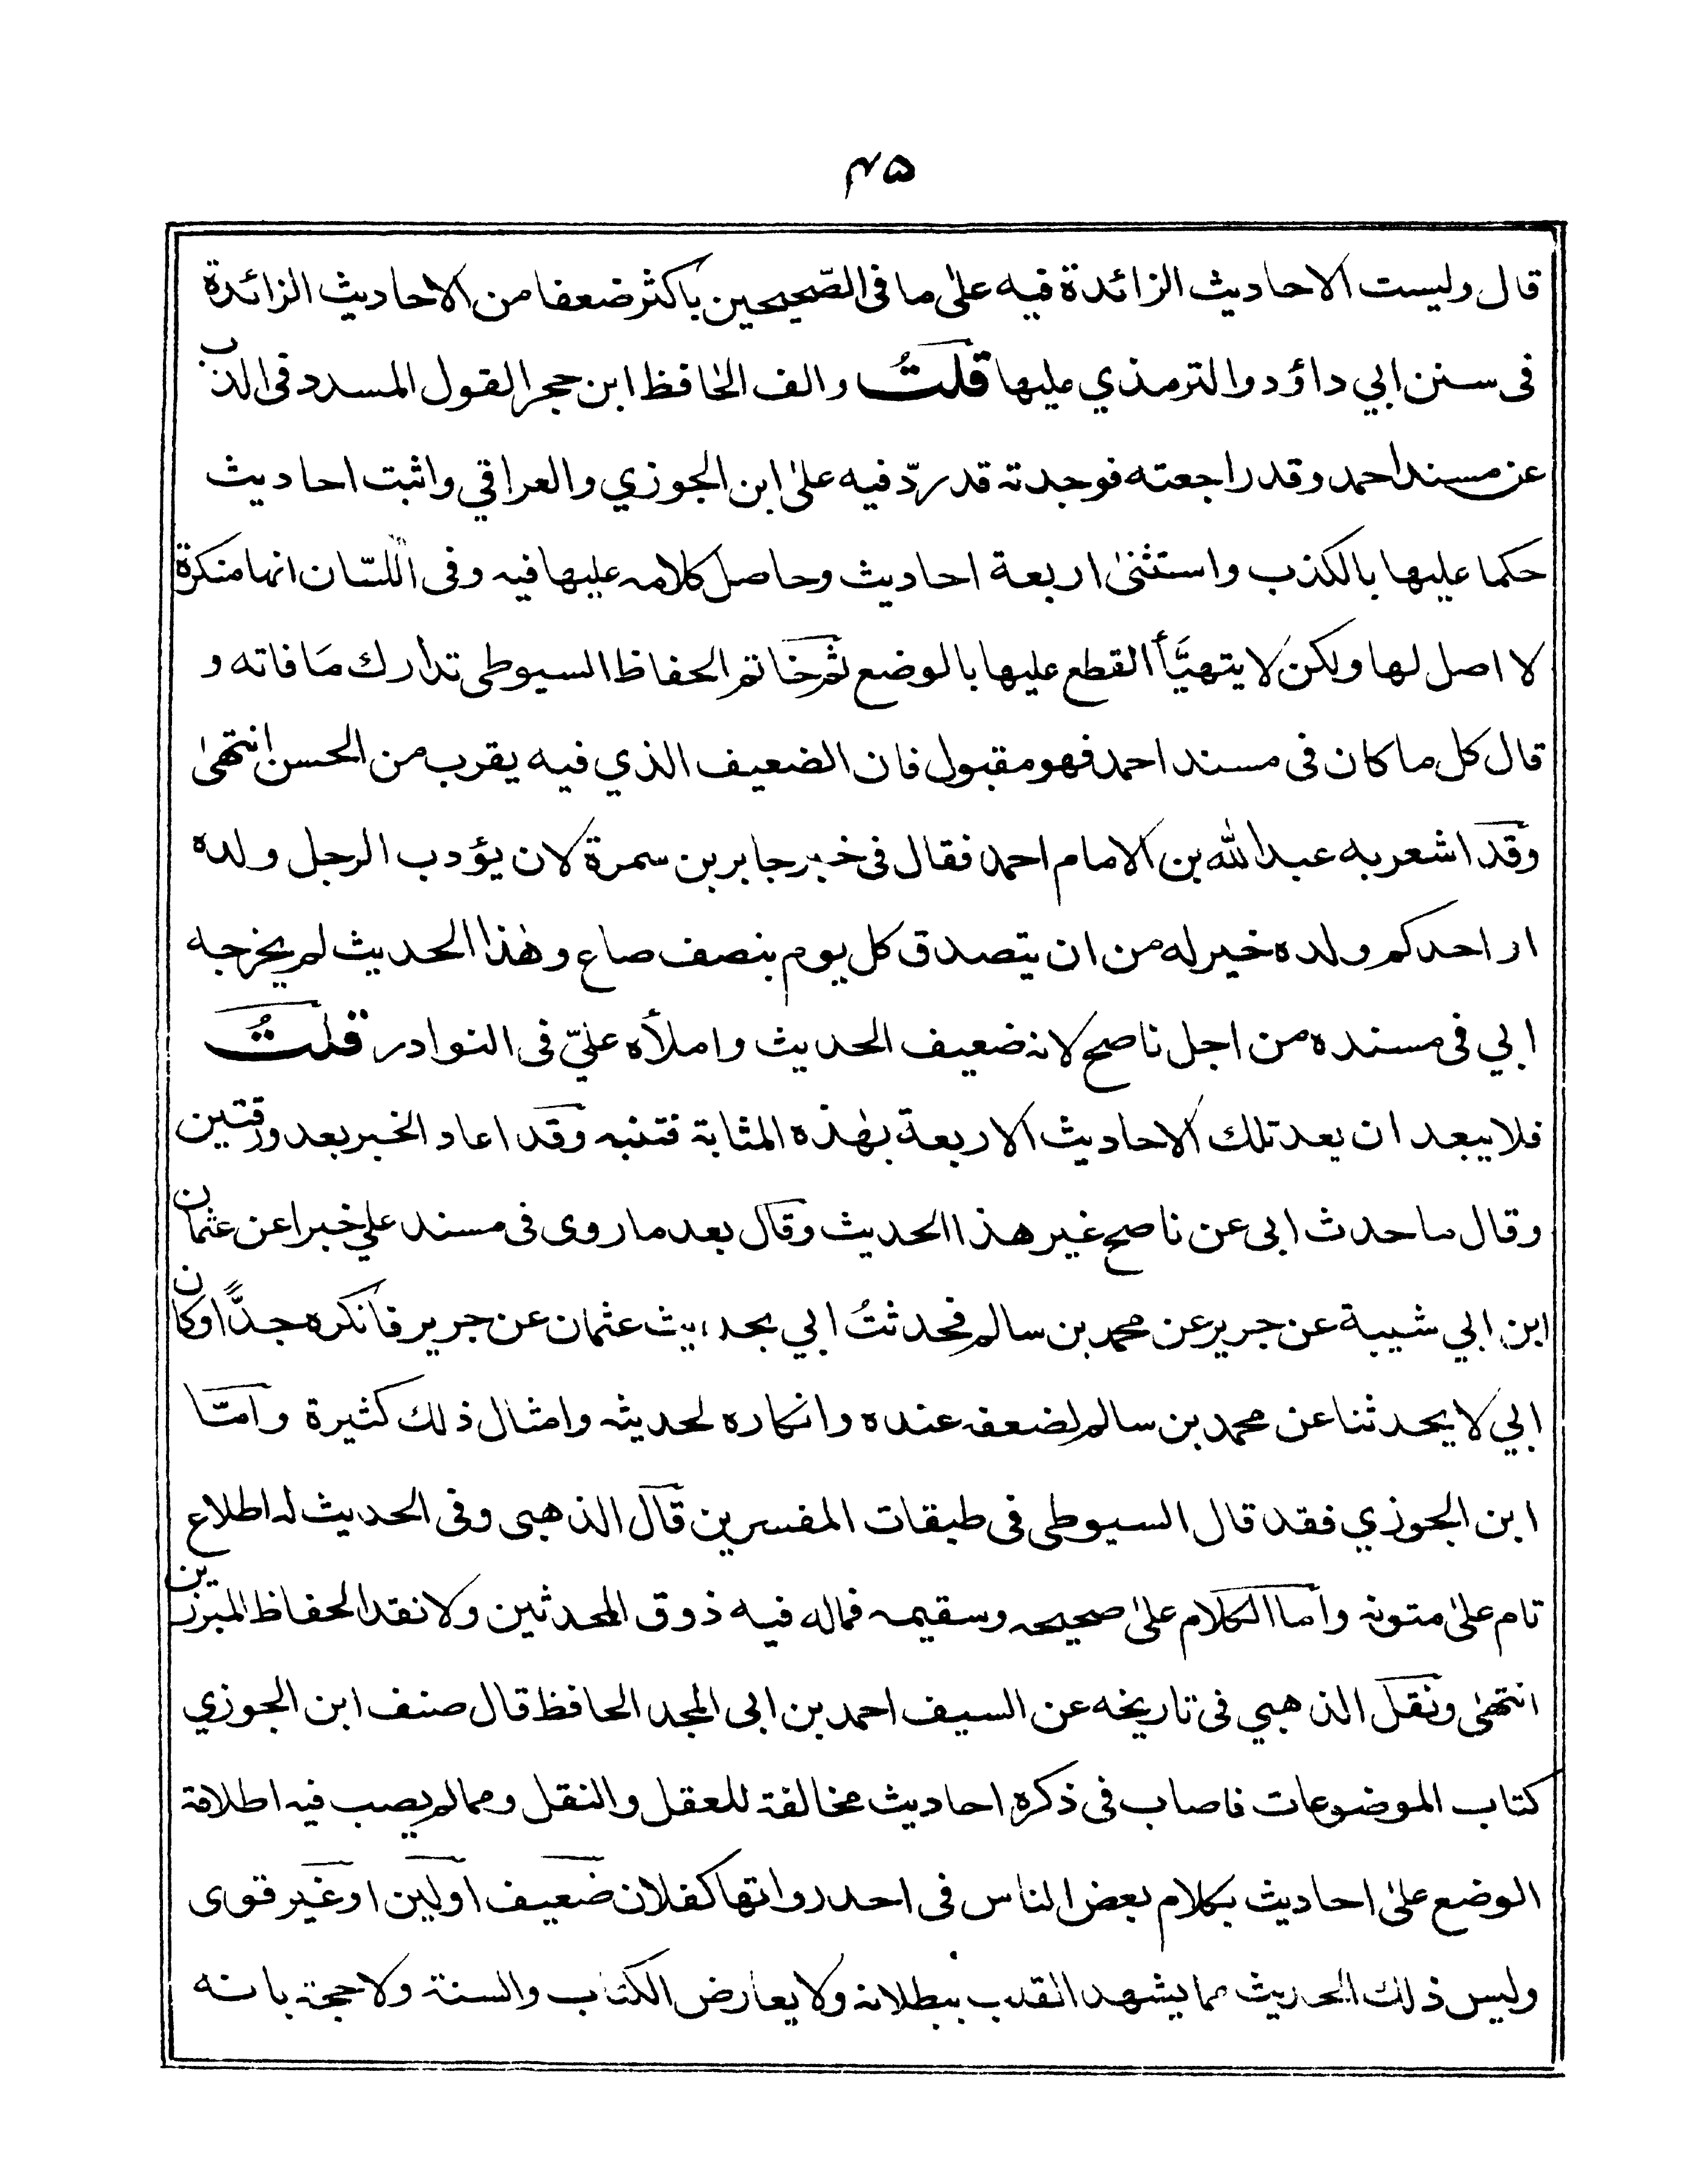 ٤٥
قال وليست الاحاديث الزائدة فيه على ما فى الصّحيحين باكثر ضعفا من الاحاديث الزائدة
فى سنن ابي داؤد والترمذي عليها قلتُ والف الحافظ ابن حجر القول المسدد فى الذب
عن مسند احمد وقد راجعته فوجدته قد ردّ فيه على ابن الجوزي والعراقي واثبت احاديث
حكما عليها بالكذب واستثنىٰ اربعة احاديث وحاصل كلامه عليها فيه وفى اللسّان انها منكرة
لا اصل لها ولكن لا يتهيَّأ القطع عليها بالوضع ثم خاتم الحفاظ السيوطى تدارك مَا فاته و
قال كل ما كان فى مسند احمد فهو مقبول فان الضعيف الذي فيه يقرب من الحسن انتهىٰ
وقد اشعر به عبد الله بن الامام احمد فقال فى خبر جابر بن سمرة لان يؤدب الرجل ولده
او احدكم ولده خير له من ان يتصدق كل يوم بنصف صاع وهٰذا الحديث لم يخرجه
ابي فى مسنده من اجل ناصح لانه ضعيف الحديث واملأه عليّ فى النوادر قلتُ
فلا يبعد ان يعد تلك الاحاديث الاربعة بهٰذه المثابة فتنبه وقد اعاد الخبر بعد ورقتين
وقال ما حدث ابى عن ناصح غير هذا الحديث وقال بعد ما روى فى مسند علي خبرا عن عثمان
ابن ابي شيبة عن جرير عن محمد بن سالم فحدثتُ ابي بحديث عثمان عن جرير فانكره جدًّا وكان
ابي لا يحدثنا عن محمد بن سالم لضعفه عنده وانكاره لحديثه وامثال ذلك كثيرة وامّا
ابن الجوزي فقد قال السيوطى فى طبقات المفسرين قال الذهبى وفى الحديث له اطلاع
تام على متونه واما الكلام على صحيحه وسقيمه فماله فيه ذوق المحدثين ولا نقد الحفاظ المبرزين
انتهىٰ ونقل الذهبي فى تاريخه عن السيف احمد بن ابى المجد الحافظ قال صنف ابن الجوزي
كتاب الموضوعات فاصاب فى ذكره احاديث مخالفة للعقل والنقل ومما لم يصب فيه اطلاقه
الوضع علىٰ احاديث بكلام بعض الناس فى احد رواتها كفلان ضعيف اولين او غير قوى
وليس ذلك الحديث مما يشهد القلب ببطلانه ولا يعارض الكتاب والسنة ولا حجة بانه